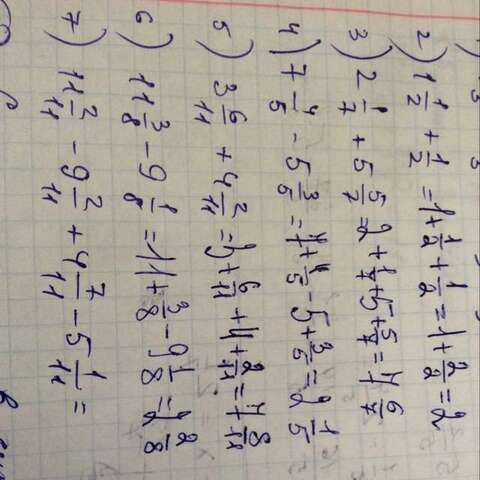 2) 1 1/2 + 1/2 = 1 + 1/2 + 1/2 = 1 + 2/2 = 2
3) 2 1/7 + 5 5/7 = 2 + 1/7 + 5 + 5/7 = 7 6/7
4) 7 4/5 - 5 3/5 = 7 + 4/5 - 5 + 3/5 = 2 1/5
5) 3 6/11 + 4 2/11 = 3 + 6/11 + 4 + 2/11 = 7 8/11
6) 11 3/8 - 9 1/8 = 11 + 3/8 - 9 1/8 = 2 2/8
7) 11 2/11 - 9 2/11 + 4 7/11 - 5 1/11 =